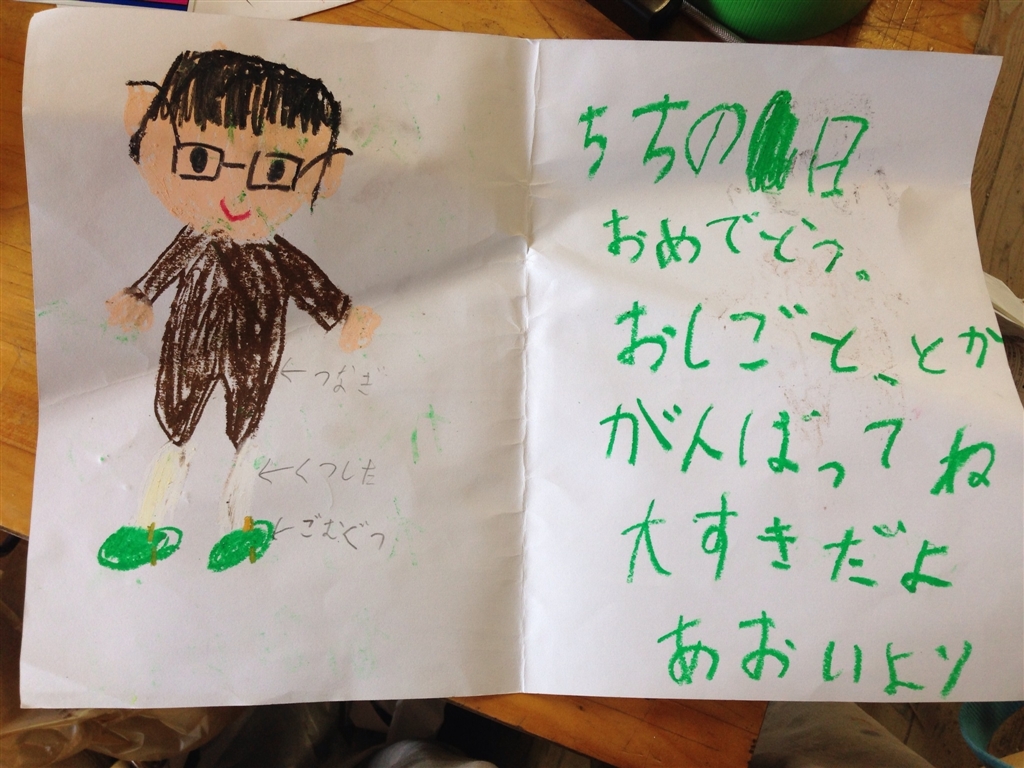 ←つなぎ
←くつした
←ごむぐつ
ちちの日
おめでとう。
おしごと、とか
がんばってね
大すきだよ
あおいより